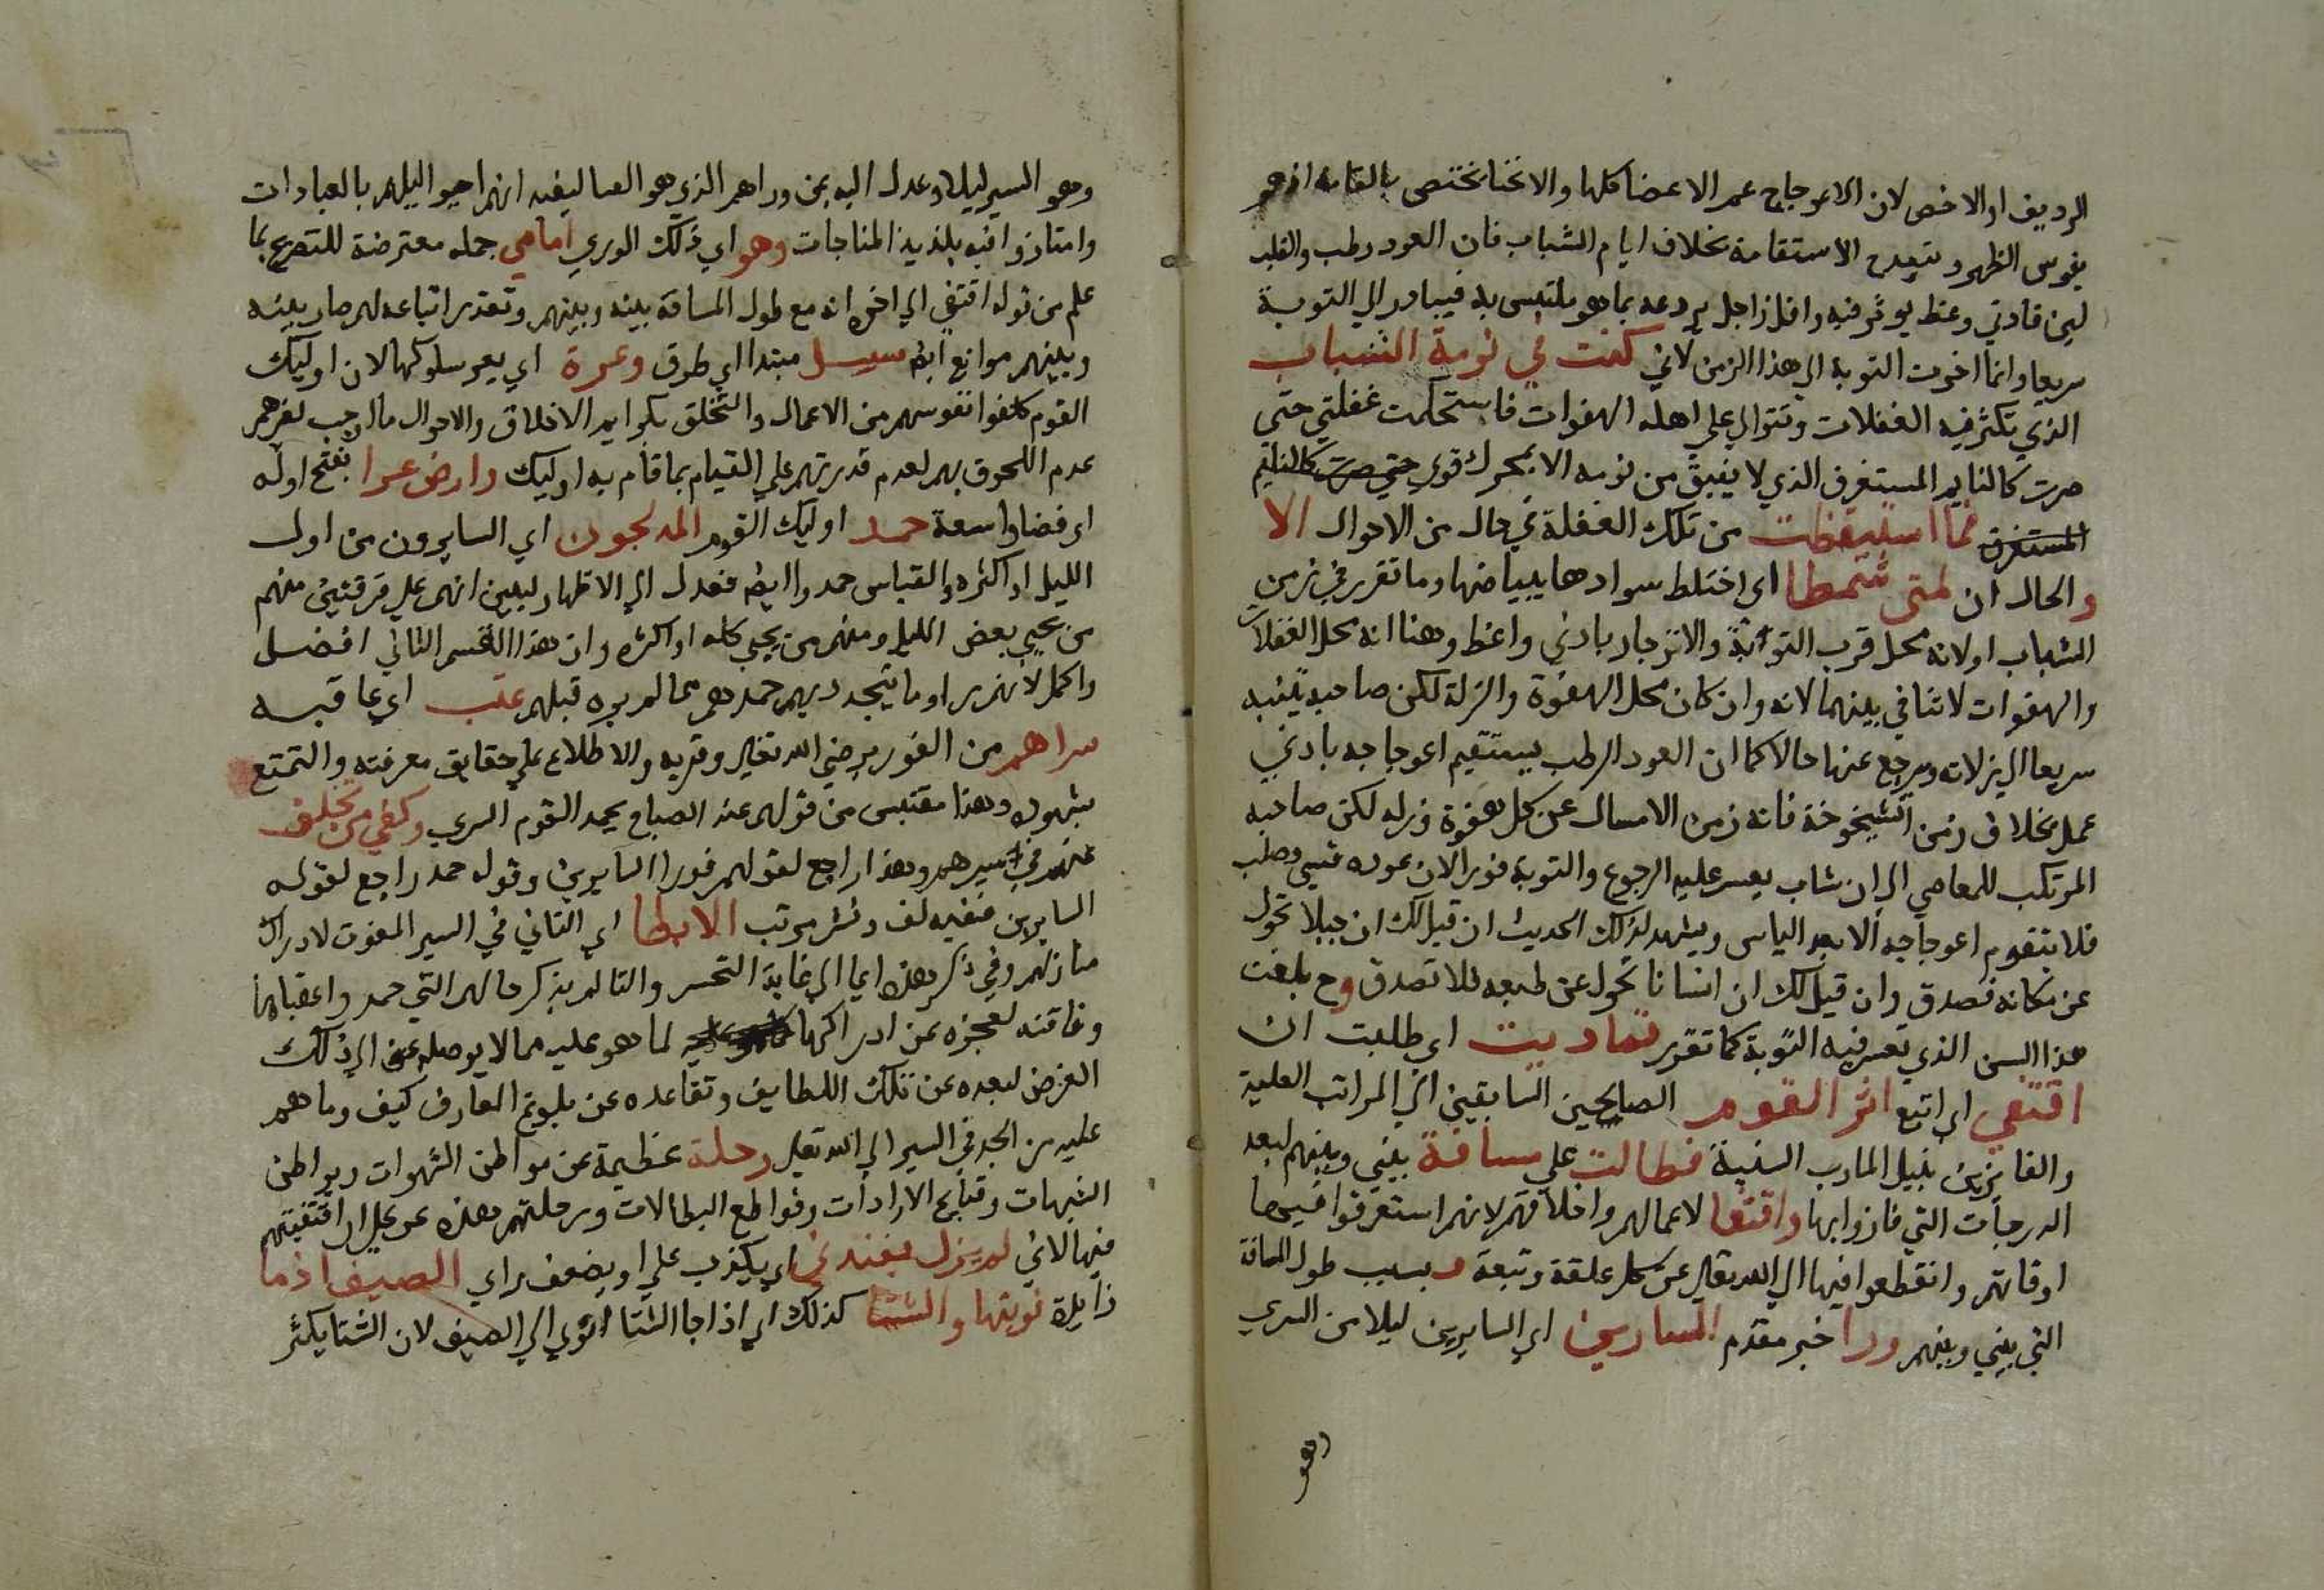 الرديف او الاخص لان الاعوجاج عمر الاعضا كلها والانحنا تختص بالقامه اذ هو
يقوس الظهر و الاستقامة بخلاف ايام الشباب فان العود رطب والقلب
لين فادني وعظ يوثر فيه واقل زاجل يردعه بما هو ملتبس به فيبادر الي التوبة
سريعا وانما اخرت التوبة الي هذا الزمن لاني كنت في نومة الشباب
الذي تكثر فيه الغفلات وتتوالي علي اهله الهفوات فاستحكمت غفلتي حتي
صرت كالنايم المستغرق الذي لا يفيق من نومه الا بمحرك قوي حتي صرت كالنايم
المستغرق فما استيقظت من تلك الغفلة في حال من الاحوال الا
والحال ان لمتي شمطا اي اختلط سوادها ببياضها وما تقرر في زمن
الشباب اولا انه محل قرب التوابة والانزجار بادني واعظ وهنا انه محل الغفلات
والهفوات لا تنافي بينهما لانه وان كان محل الهفوة والزلة لكن صاحبه يتنبه
سريعا الي زلاته ويرجع عنها حالا كما ان العود الرطب يستقيم اعوجاجه بادني
عمل بخلاف زمن الشيخوخة فانه زمن الامساك عن كل هفوة وزله لكن صاحبه
المرتكب للمعاصي الي ان شاب يعسر عليه الرجوع والتوبة فورا لان عوده قسي وصلب
فلا يتقوم اعوجاجه الا بعد الياس ويشهد لذلك الحديث ان قيل لك ان جبلا تحول
عن مكانه فصدق وان قيل لك ان انسانا تحول عن طبعه فلا تصدق وح بلغت
هذا السن الذي تعسر فيه التوبة كما تقرر تماديت اي طلبت ان
اقتفي اي اتبع اثر القوم الصالحين السابقين الي المراتب العلية
والفايزين بنيل المارب السنية فطالت علي مسافة بيني وبينهم لبعد
الدرجات التي فازوا بها واقتفا لاعمالهم واخلاقهم لانهم استغرقوا فيها
اوقاتهم وانقطعوا فيها الي الله تعالي عن كل علقة وتبعة وبسبب طول المسافة
التي بيني وبينهم ورا خبر مقدم السارين اي السايرين ليلا من السري
وهو
وهو السير ليلا وعدل اليه عن وراهم الذي هو القياس ليفيد انهم احيوا ليلهم بالعبادات
وامتازوا فيه بلذيذ المناجات وهو اي ذلك الوري امامي جمله معترضة للتصريح بما
علم من قوله اقتفي الي اخره انه مع طول المسافة بينه وبينهم وتعذر اتباعه لهم صار بينه
وبينهم موانع ايض سبل مبتدا اي طرق وعرة اي يعسر سلوكها لان اوليك
القوم كلفوا نفوسهم من الاعمال والتخلق بكرايم الاخلاق والاحوال ما اوجب لغيرهم
عدم اللحوق بهم لعدم قدرتهم علي القيام بما قام به اوليك وارض عرا بفتح اوله
اي فضا واسعة حمد اوليك القوم المدلجون اي السايرون من اول
الليل او اكثره والقياس حمدوا ايض فعدل الي الاظهار ليبين انهم علي فرقتين منهم
من يحيي بعض الليل ومنهم من يحيي كله او اكثره وان هذا القسم الثاني افضل
واكمل لانهم راوا ما يتجدد بهم حمدهم مما لم يره قبلهم غب اي عاقبه
سراهم من الفوز برضي الله تعالي وقربه والاطلاع علي حقايق معرفته والتمتع
بشهوده وهذا مقتبس من قولهم عند الصباح يحمد القوم السري وكفي من تخلف
عنهم في سيرهم وهذا راجع لقولهم فورا السايرين وقوله حمد راجع لقوله
السايرين ففيه لف ونشر مرتب الابطا اي التاني في السير المفوت لادراك
منازلهم وفي ذكر هذه ايما الي غاية التحسر والتالم بذكر حالهم التي حمدوا عقباها
وفاقته لعجزه عن ادراكها لما هو عليه مما لا يوصله عن الي ذلك
الغرض لبعده عن تلك اللطايف وتقاعده عن بلوغ المعارف كيف وما هم
عليه من الجد في السير الي الله تعالي رحلة عظيمة عن مواطن الشهوات وبواطن
الشبهات وقبايح الارادات وقواطع البطالات ورحلتهم هذه عز علي ان اقتفيتهم
فيها لاني لم يزل يفندني اي يكذب علي او يضعف راي الصيف اذ ما
زايلة نويتها والشتا كذلك اي اذا جا الشتا انوي الي الصيف لان الشتا يكثر